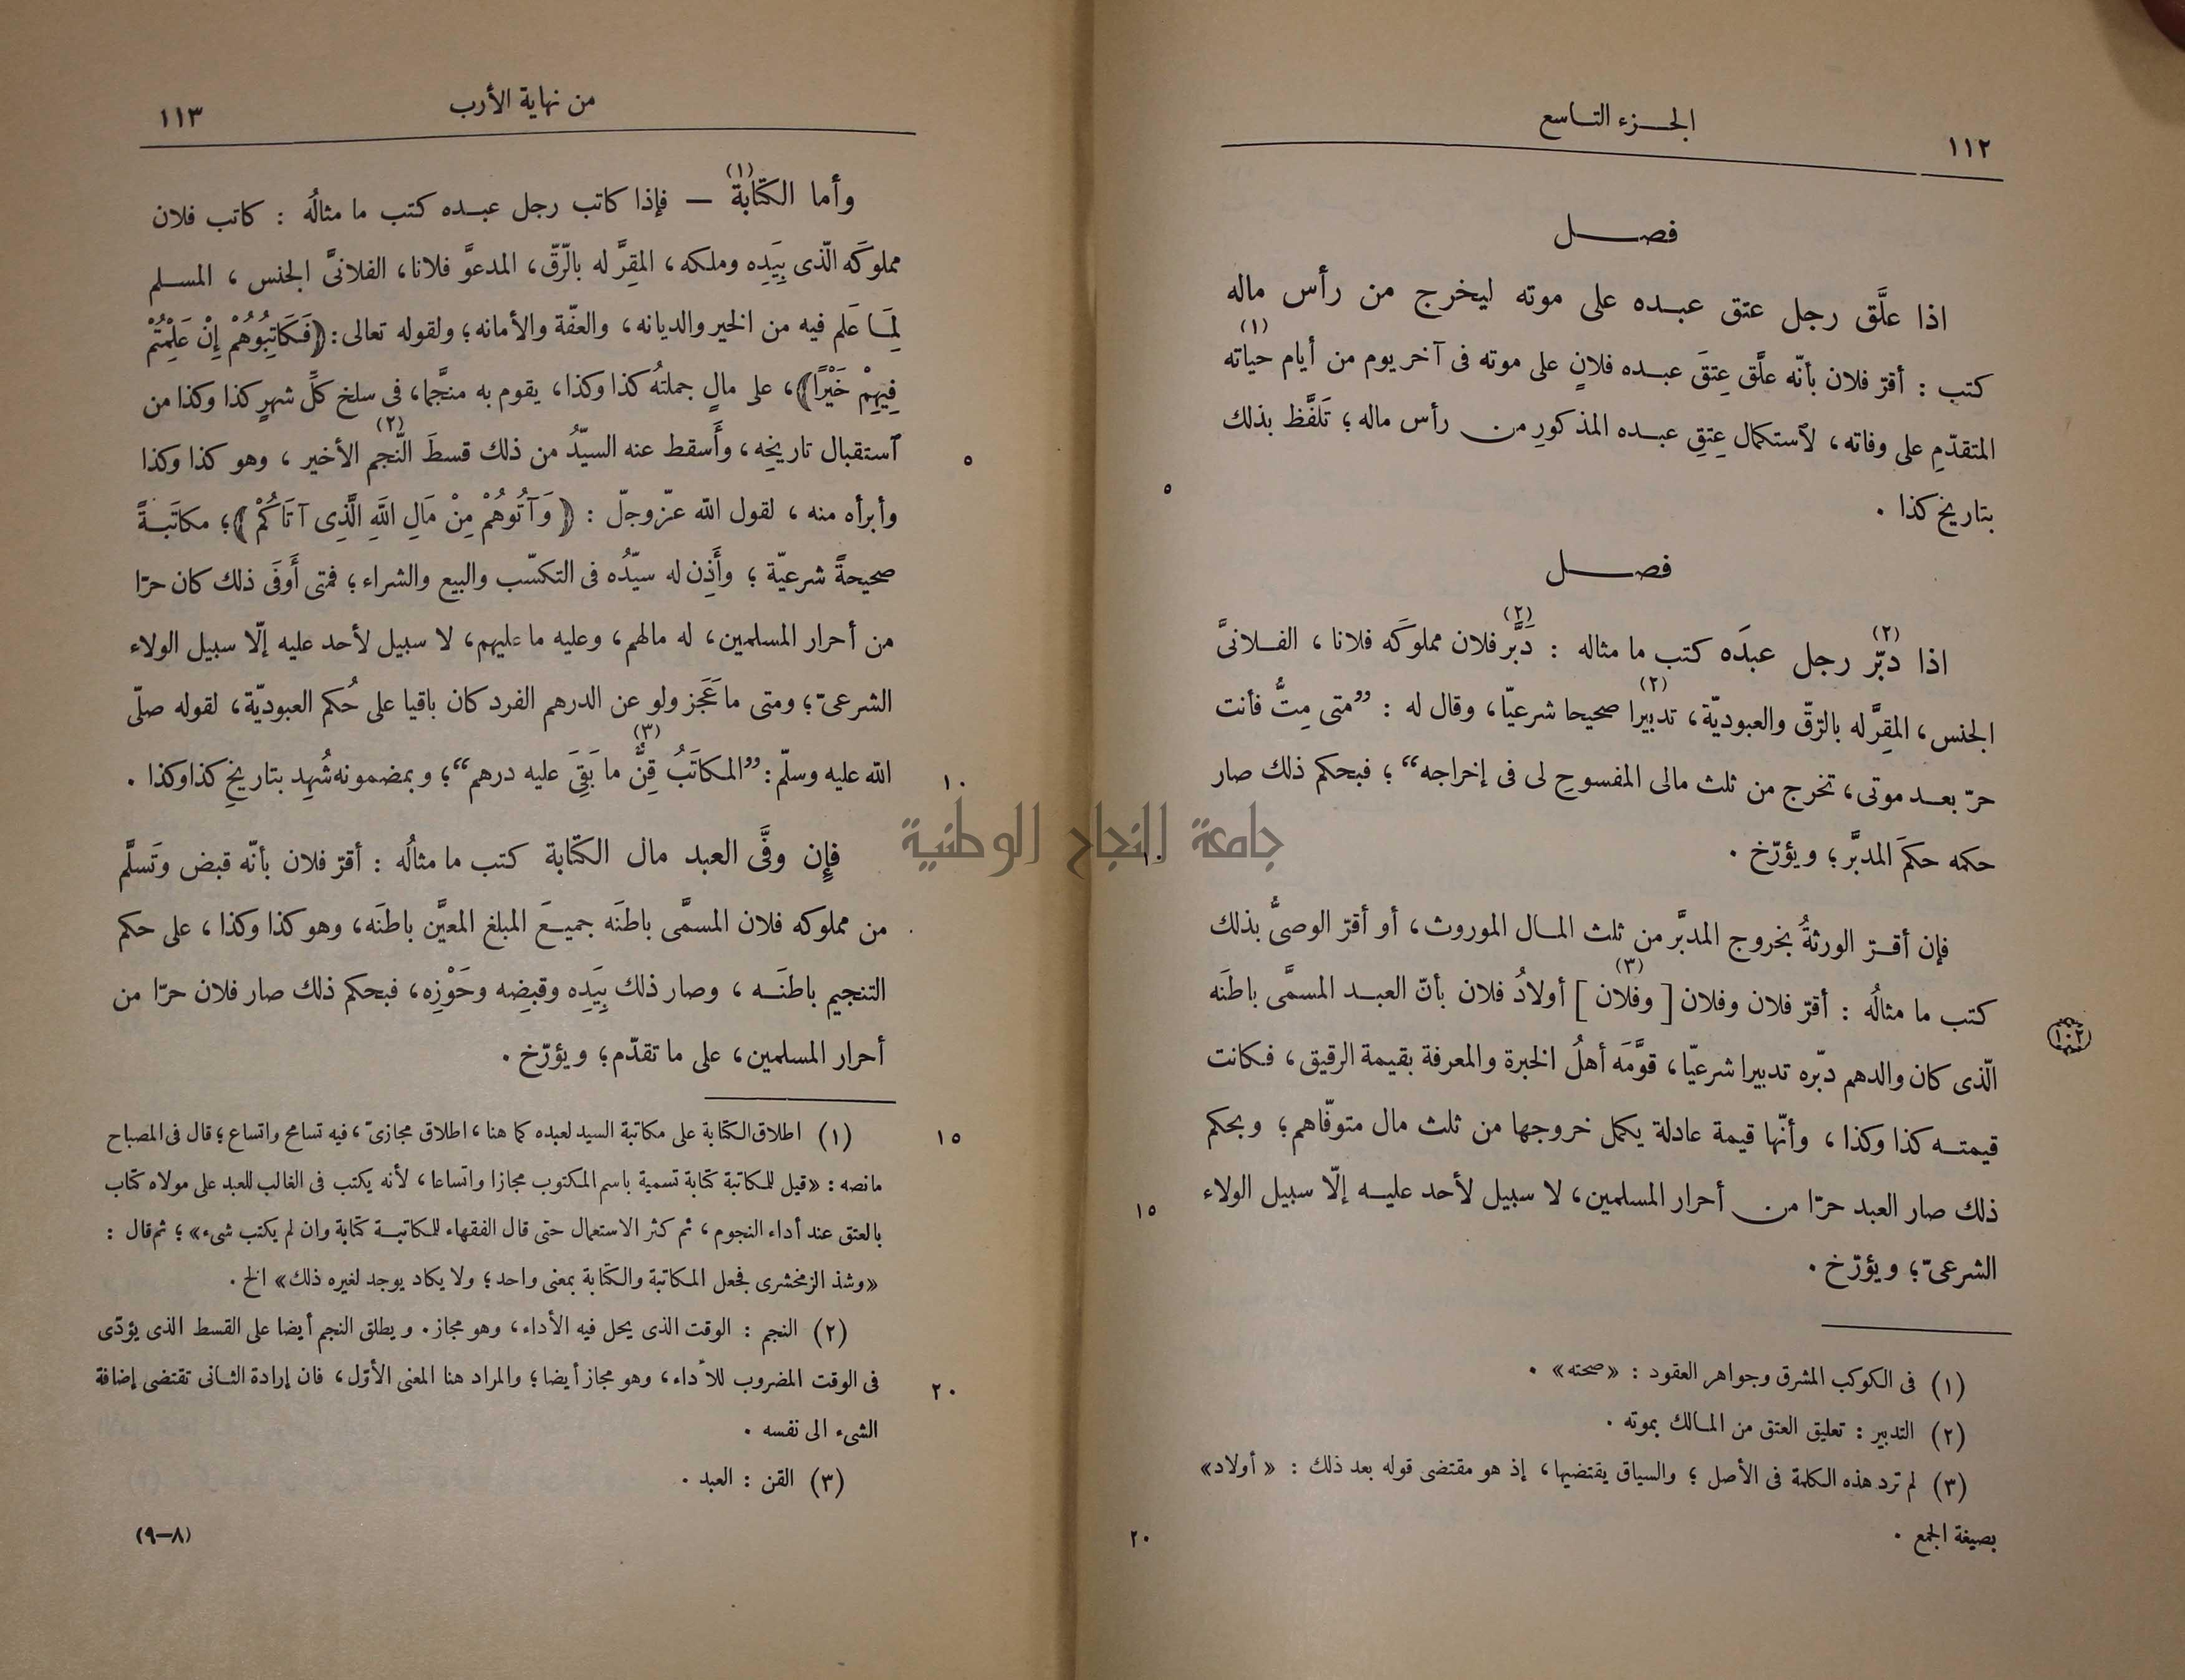 ١١٢
الجزء التاسع
فصل
اذا علَّق رجل عتق عبده على موته ليخرج من رأس ماله
كتب : أقرّ فلان بأنّه علَّق عِتقَ عبده فلانٍ على موته فى آخر يوم من أيام حياته (١)
المتقدّمِ على وفاته، لاستكمال عِتقِ عبده المذكورِ من رأس ماله؛ تَلفَّظ بذلك
بتاريخ كذا .
٥
فصل
اذا دبّر (٢) رجل عبدَه كتب ما مثاله : دَبَّر (٢) فلان مملوكَه فلانا، الفلانىَّ
الجنس، المقِرَّ له بالرّقّ والعبوديّة، تدبيرا (٢) صحيحا شرعيّا، وقال له : ”متى مِتُّ فأنت
حرّ بعد موتى، تخرج من ثلث مالى المفسوحِ لى فى إخراجه“؛ فبحكم ذلك صار
حكمه حكمَ المدبَّر؛ ويؤرّخ .
١٠
فإن أقرّ الورثةُ بخروج المدبَّر من ثلث المال الموروث، أو أقرّ الوصىُّ بذلك
كتب ما مثالُه : أقرّ فلان وفلان [وفلان (٣)] أولادُ فلان بأنّ العبد المسمَّى باطنَه
١٠٢
الّذى كان والدهم دبّره تدبيرا شرعيّا، قوَّمَه أهلُ الخبرة والمعرفة بقيمة الرقيق، فكانت
قيمته كذا وكذا، وأنّها قيمة عادلة يكمل خروجها من ثلث مال متوفّاهم؛ وبحكم
ذلك صار العبد حرّا من أحرار المسلمين، لا سبيل لأحد عليه إلّا سبيل الولاء
١٥
الشرعىّ؛ ويؤرّخ .
(١) فى الكوكب المشرق وجواهر العقود : «صحته» .
(٢) التدبير : تعليق العتق من المالك بموته .
(٣) لم ترد هذه الكلمة فى الأصل ؛ والسياق يقتضيها، إذ هو مقتضى قوله بعد ذلك : «أولاد»
بصيغة الجمع .
٢٠
من نهاية الأرب
١١٣
وأما الكتابة (١) — فإذا كاتب رجل عبده كتب ما مثالُه : كاتب فلان
مملوكَه الّذى بِيَدِه وملكه، المقِرَّ له بالرّقّ، المدعوَّ فلانا، الفلانىَّ الجنس، المسلم
لِمَا عَلم فيه من الخير والديانه، والعفّة والأمانه؛ ولقوله تعالى: ﴿فَكَاتِبُوهُمْ إِنْ عَلِمْتُمْ
فِيهِمْ خَيْرًا﴾، على مالٍ جملتهُ كذا وكذا، يقوم به منجَّما، فى سلخ كلِّ شهرٍ كذا وكذا من
آستقبال تاريخِه، وأَسقط عنه السيّدُ من ذلك قسطَ النَّجم (٢) الأخير، وهو كذا وكذا
٥
وأبرأه منه، لقول الله عزّ وجلّ : ﴿وَآتُوهُمْ مِنْ مَالِ اللَّهِ الَّذِى آتَاكُمْ﴾؛ مكاتَبةً
صحيحةً شرعيّة؛ وأَذِن له سيّدُه فى التكسّب والبيع والشراء؛ فمتى أَوفَى ذلك كان حرّا
من أحرار المسلمين، له مالهم، وعليه ما عليهم، لا سبيل لأحد عليه إلّا سبيل الولاء
الشرعىّ؛ ومتى ما عَجَز ولو عن الدرهم الفرد كان باقيا على حُكم العبوديّة، لقوله صلّى
الله عليه وسلّم : ”المكاتَبُ قِنٌّ (٣) ما بَقِىَ عليه درهم“؛ وبمضمونه شُهِد بتاريخِ كذا وكذا .
١٠
فإن وفَّى العبد مال الكتابة كتب ما مثالُه : أقرّ فلان بأنّه قبض وتَسلَّم
من مملوكه فلان المسمَّى باطنَه جميعَ المبلغ المعيَّن باطنَه، وهو كذا وكذا، على حكم
التنجيم باطنَه، وصار ذلك بِيَدِه وقبضِه وحَوْزِه، فبحكم ذلك صار فلان حرّا من
أحرار المسلمين، على ما تقدّم؛ ويؤرّخ .
(١) اطلاق الكتابة على مكاتبة السيد لعبده كما هنا، اطلاق مجازىّ، فيه تسامح واتساع؛ قال فى المصباح
١٥
مانصه : «قيل للمكاتبة كتابة تسمية باسم المكتوب مجازا واتساعا، لأنه يكتب فى الغالب للعبد على مولاه كتاب
بالعتق عند أداء النجوم، ثم كثر الاستعمال حتى قال الفقهاء للمكاتبة كتابة وان لم يكتب شىء»؛ ثم قال :
«وشذ الزمخشرى فجعل المكاتبة والكتابة بمعنى واحد؛ ولا يكاد يوجد لغيره ذلك» الخ .
(٢) النجم : الوقت الذى يحل فيه الأداء، وهو مجاز . ويطلق النجم أيضا على القسط الذى يؤدّى
فى الوقت المضروب للأداء، وهو مجاز أيضا؛ والمراد هنا المعنى الأوّل، فان إرادة الثانى تقتضى إضافة
٢٠
الشىء الى نفسه .
(٣) القن : العبد .
(٨—٩)
جامعة النجاح الوطنية